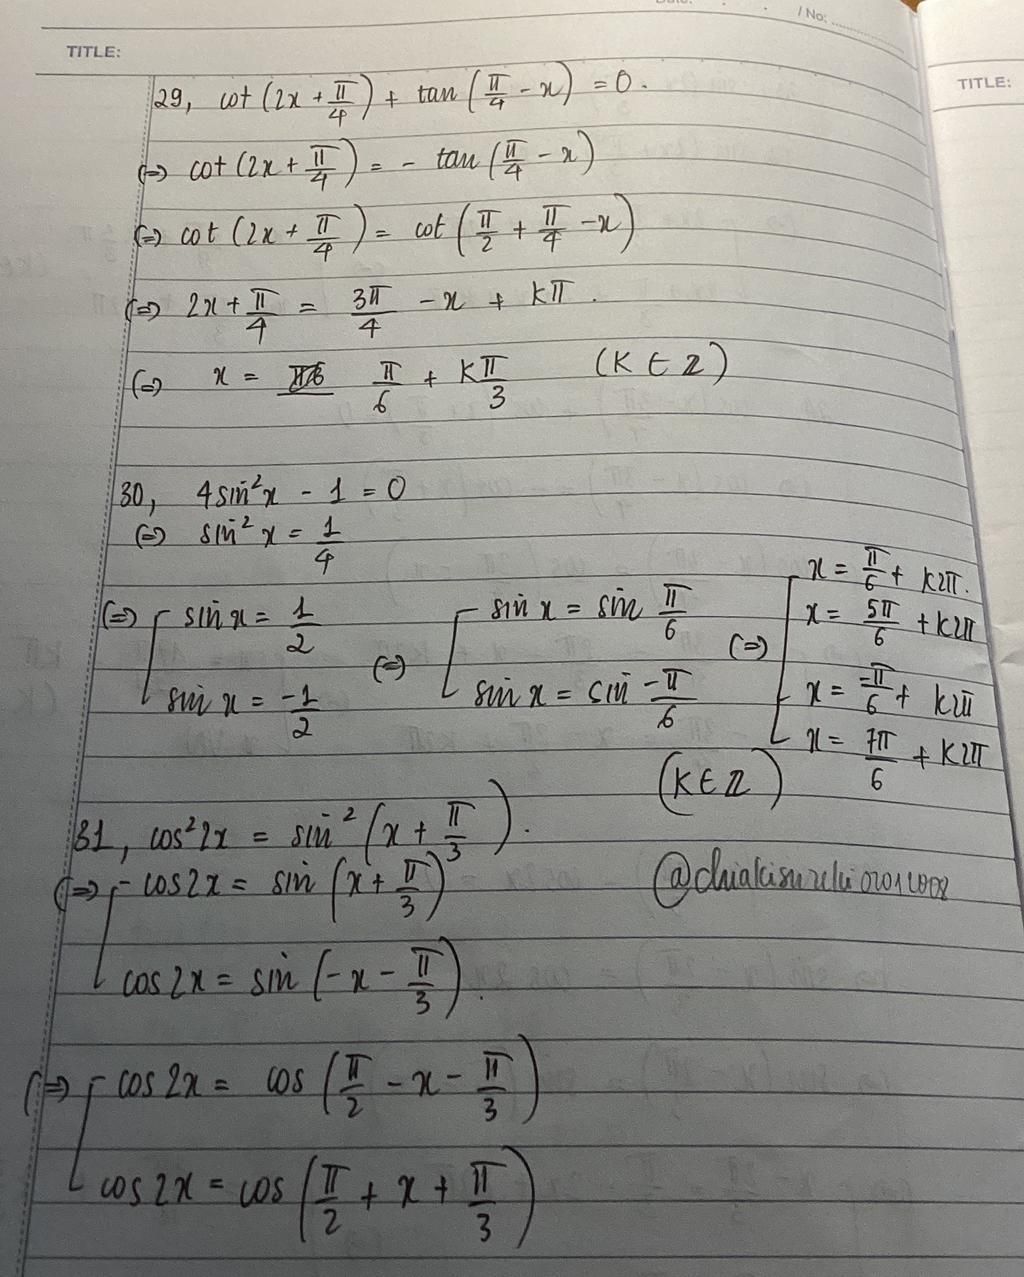 / No:
TITLE:
TITLE:
29, cot (2x + π/4) + tan (π/4 - x) = 0.
(=) cot (2x + π/4) = - tan (π/4 - x)
(=) cot (2x + π/4) = cot (π/2 + π/4 - x)
(=) 2x + π/4 = 3π/4 - x + kπ.
(=) x = π/6 + kπ/3 (k ∈ Z)
30, 4sin²x - 1 = 0
(=) sin²x = 1/4
(=) [ sin x = 1/2
sin x = -1/2
(=) [ sin x = sin π/6
sin x = sin -π/6
(=) [ x = π/6 + k2π.
x = 5π/6 + k2π
x = -π/6 + k2π
x = 7π/6 + k2π
(k ∈ Z)
31, cos²2x = sin² (x + π/3).
(=) [ cos2x = sin (x + π/3)
cos2x = sin (-x - π/3).
(=) [ cos2x = cos (π/2 - x - π/3)
cos2x = cos (π/2 + x + π/3)